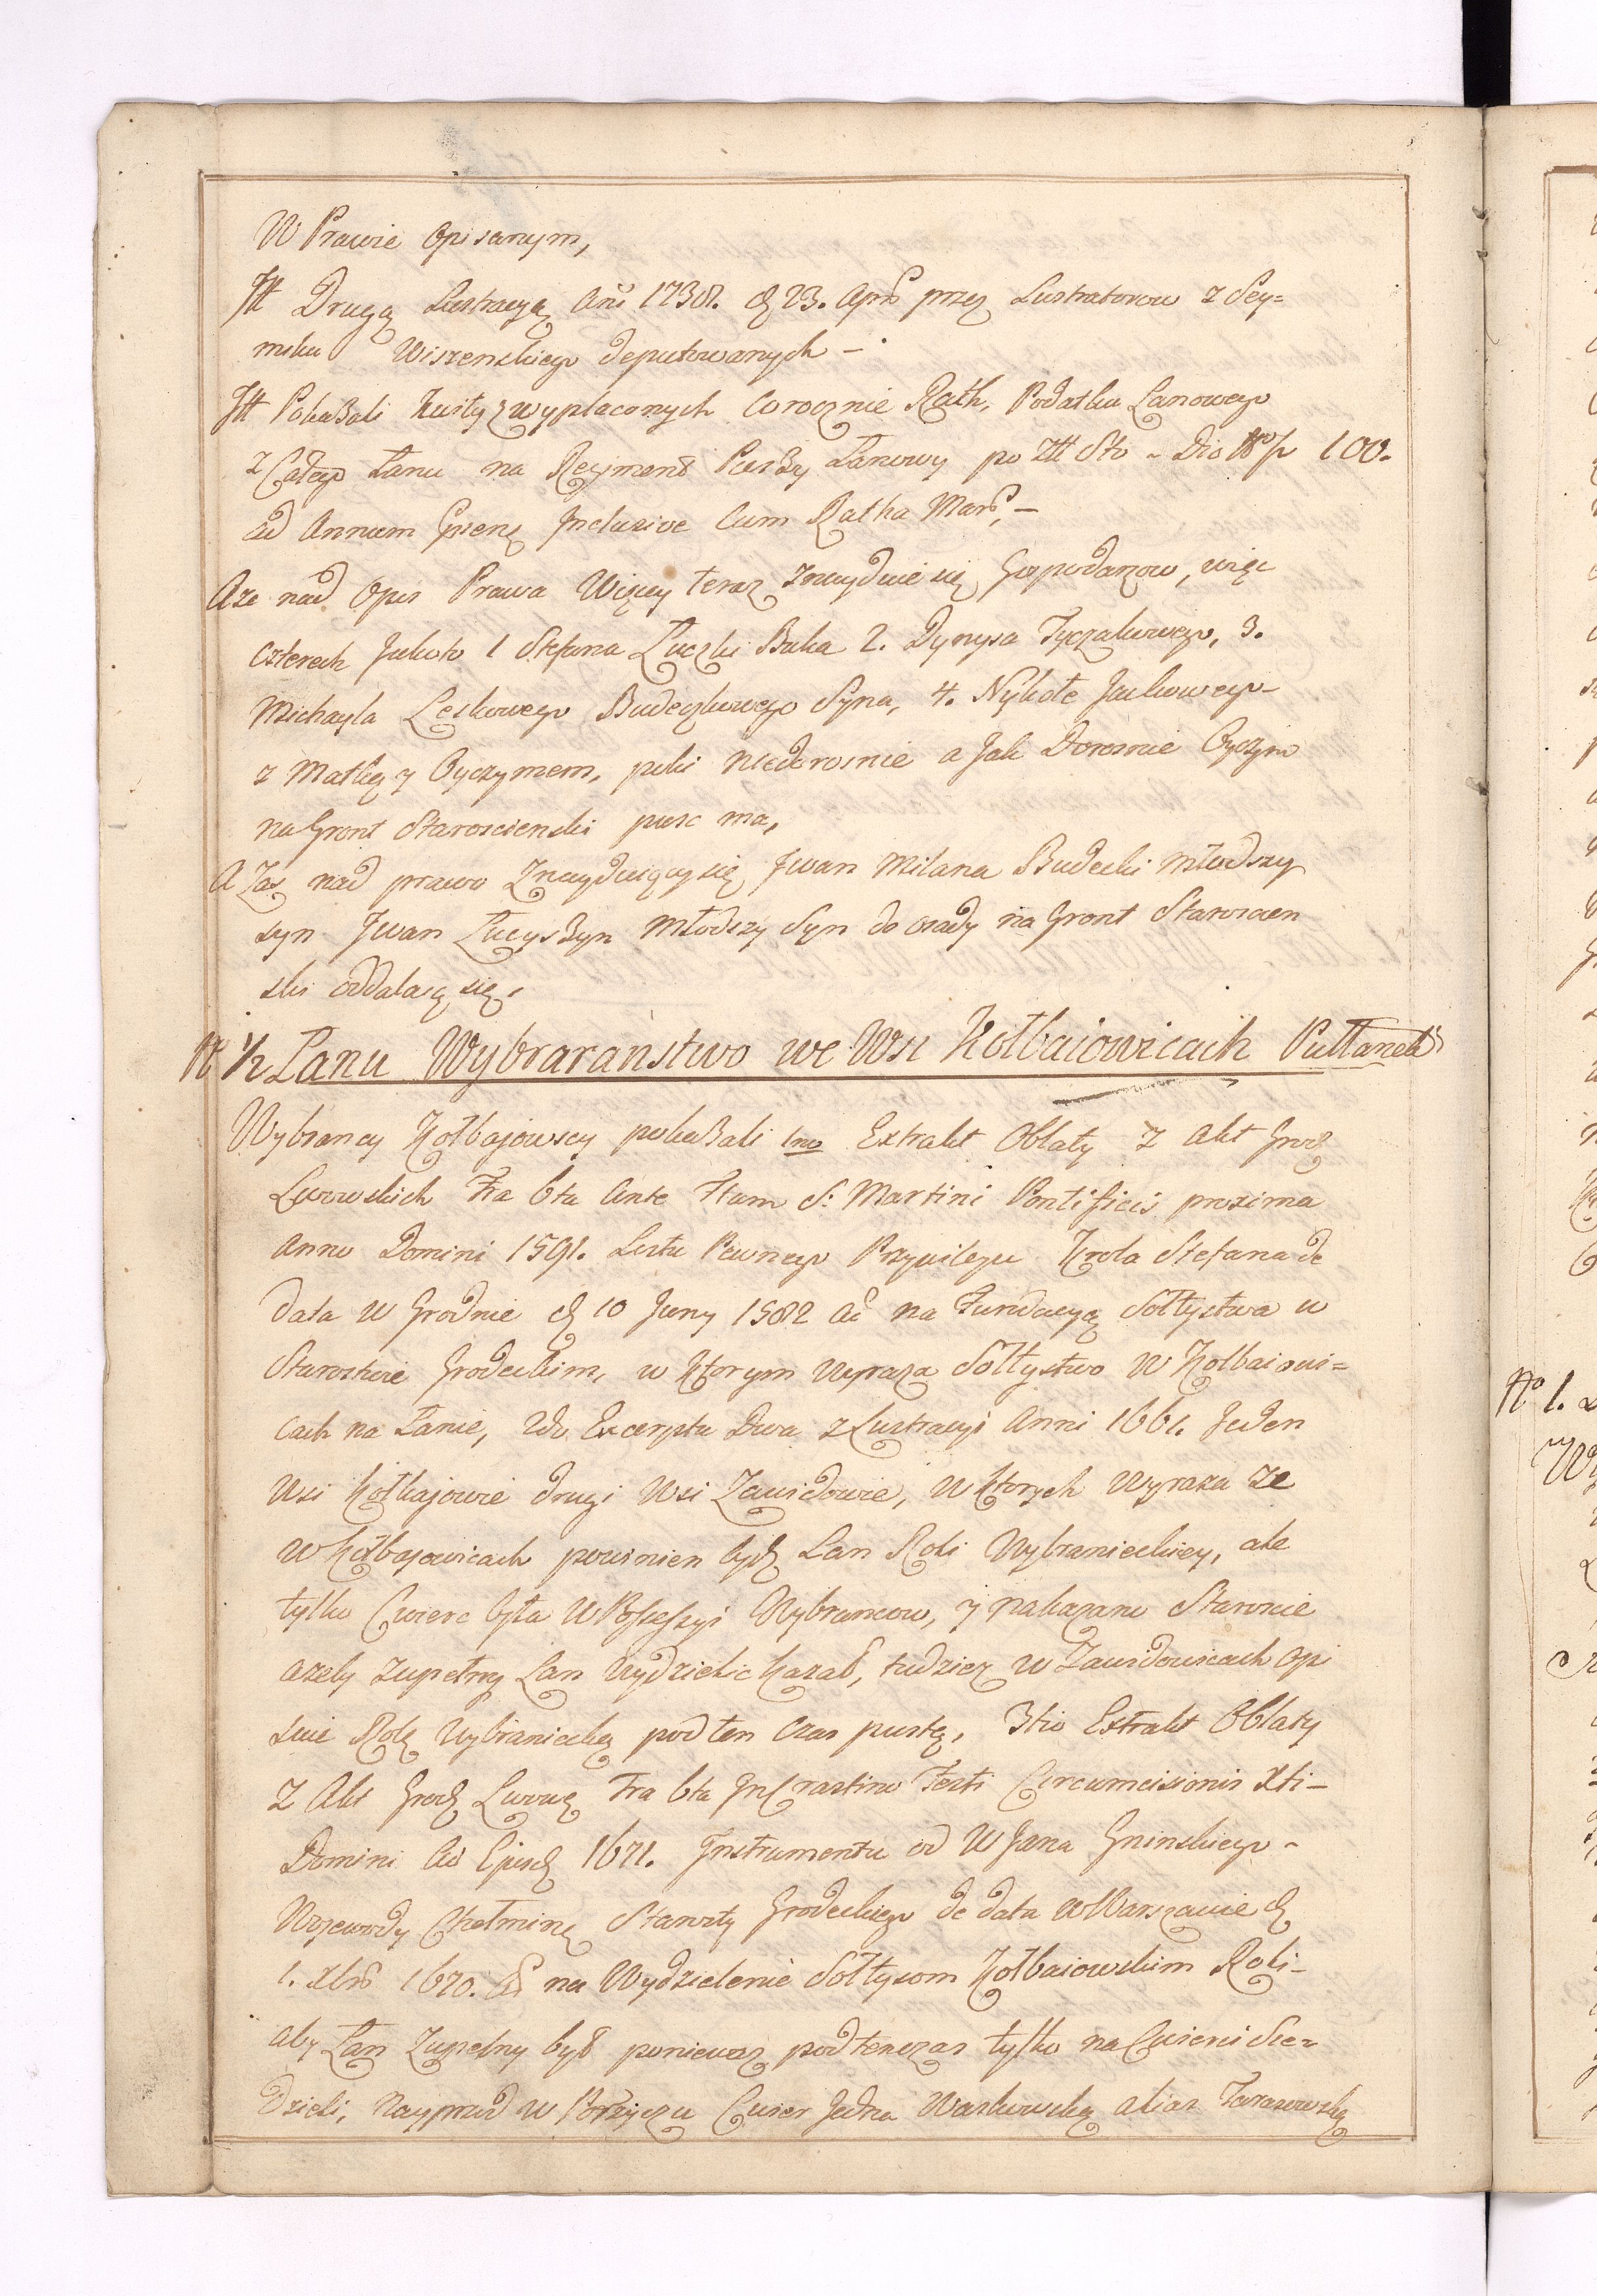 W Prawie Opisanym,
Jtt Drugą Lustracyą Ani 1738. d 23. Apr przez Lustratorow z Sey=
miku Wiszenskiego deputowanych –
Jtt Pokazali kwity z wypłaconych Corocznie Rath, Podatku Lanowego
z Całego Łanu na Regiment Pieszy Łanowy po Ztt Sto – Dio 100.
ad Annum Prens Jnclusive Cum Ratha Mar, –
Aze nad Opis Prawa Więcey teraz znayduie się Gospodarzow, więc
czterech Jakoto 1 Stefana Łuczki Baka 2. Dynysa Tyczakowego, 3.
Michayla Leskowego Budeczkowego Syna, 4. Nykołe Jackowego
z Matką y Oyczymem, poki niedorosnie a Jak Dorosnie Oyczym
na Gront Staroscienski puść ma,
A Zas nad prawo Znayduiący się Jwan Milana Budecki młodszy
syn Jwan Łucyszyn Młodszy Syn do osady na Gront Starościen
ski oddalaią się.
½ Łanu Wybraranstwo we Wsi Kołbaiowicach
Wybrancy Kołbajowscy pokazali 1mo Extrakt Oblaty z Akt Grod
Lwowskich Fra 6ta Ante Ftum S: Martini Pontificis proxima
Anno Domini 1591. Listu Pewnego Przywileyu Krola Stefana de
data w Grodnie d 10 Juny 1582 na Fundacyą Sołtystwa w
Starostwie Grodeckim, w Ktorym wyraza Sołtystwo w Kołbaiowi=
cach na Łanie, 2do Excerpta Dwa z Lustracyi Anni 1661. Jeden
Wsi Kołbajowic drugi Wsi Zawidowic, w Ktorych Wyraza że
w Kołbajowicach powinien bydź Lan Roli Wybranieckiey, ale
tylko Cwierc była w Possessyi Wybrancow, y nakazano Staroscie
azeby zupełny Lan Wydzielic kazał, tudziez w Zawidowicach opi
suie Rolę Wybraniecką pod ten Czas pustą, 3tio Extrakt Oblaty
Z Akt Grod Lwow Fra 6ta Jn Crastino Festi Circumcisionis Xti –
Domini 1671. Jnstrumentu od W Jana Gninskiego –
Wojewody Chełmin Starosty Grodeckiego de data w Warszawie d
1. Xbr 1670. na Wydzielenie Sołtysom Kołbaiowskim Roli –
aby Łan Zupełny był poniewaz podtenczas tylko na Cwierci Sie=
dzieli, Nayprzod w Porzyczu Cwierc Jedna Waskowską alias Tarasowską